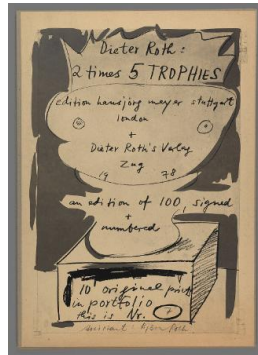 Dieter Roth :
2 times 5 TROPHIES
edition hansjörg mayer stuttgart
london
+
Dieter Roth's Verlag
Zug
19 78
an edition of 100, signed
+
numbered
10 original prints
in portfolio
this is Nr.
assistant : Björn Roth